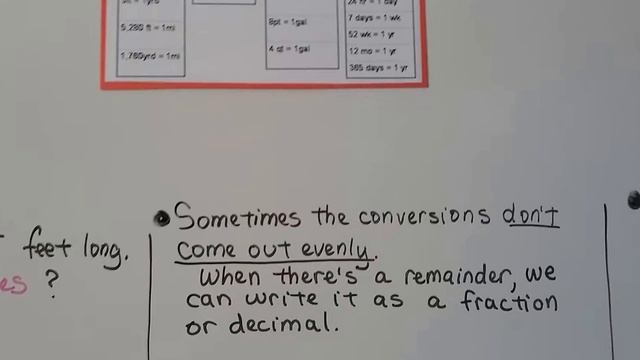 5,280 ft = 1mi
1,760yrd = 1mi
8pt = 1gal
4 qt = 1gal
24 hr = 1 day
7 days = 1 wk
52 wk = 1 yr
12 mo = 1 yr
365 days = 1 yr
feet long.
?
• Sometimes the conversions don't
come out evenly.
When there's a remainder, we
can write it as a fraction
or decimal.